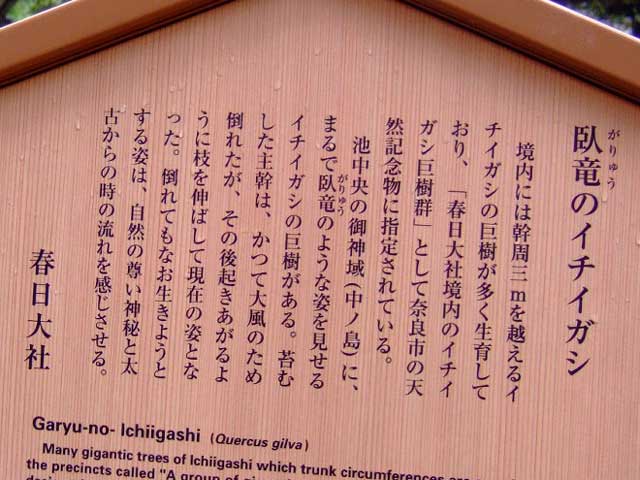 がりゅう
臥竜のイチイガシ
境内には幹周三mを越えるイ
チイガシの巨樹が多く生育して
おり、「春日大社境内のイチイ
ガシ巨樹群」として奈良市の天
然記念物に指定されている。
池中央の御神域(中ノ島)に、
がりゅう
まるで臥竜のような姿を見せる
イチイガシの巨樹がある。苔む
した主幹は、かつて大風のため
倒れたが、その後起きあがるよ
うに枝を伸ばして現在の姿とな
った。倒れてもなお生きようと
する姿は、自然の尊い神秘と太
古からの時の流れを感じさせる。
春日大社
Garyu-no- Ichiigashi (Quercus gilva)
Many gigantic trees of Ichiigashi which trunk circumferences are
the precincts called "A group of